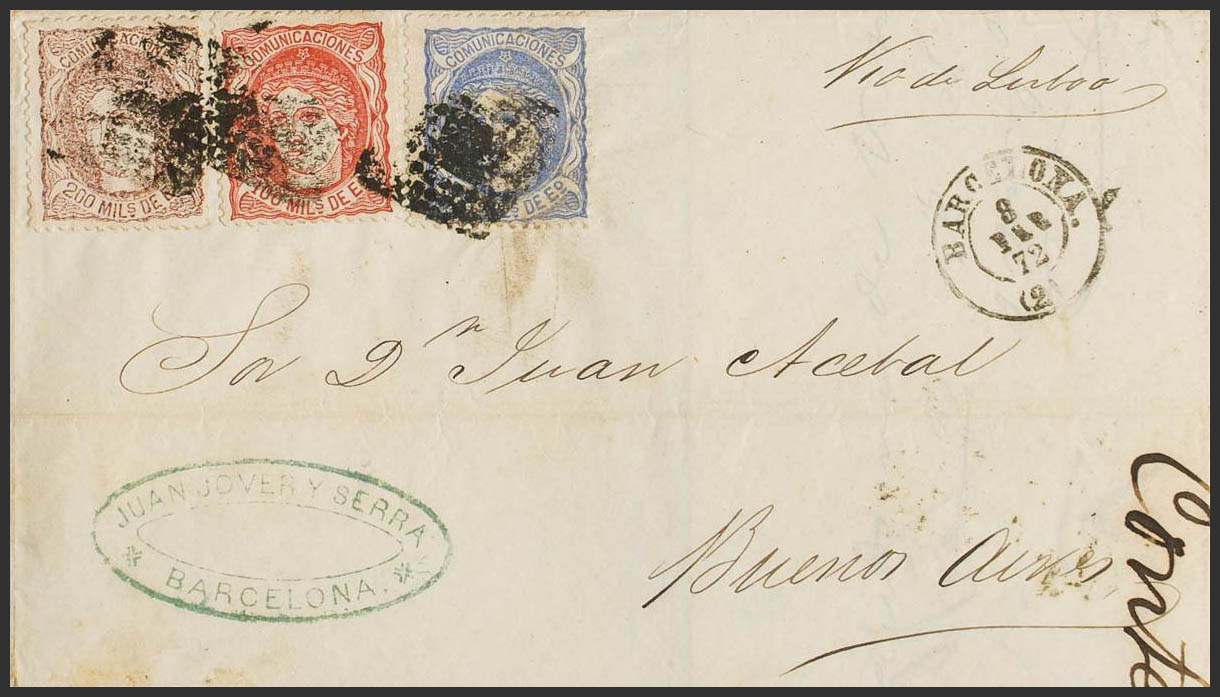 COMUNICACIONES
200 MILS DE Eº
COMUNICACIONES
100 MILS DE E
COMUNICACIONES
S DE Eº
Via de Lisboa
BARCELONA.
8
MAR
72
(2)
Sor Dn Juan Acebal
JUAN JOVER Y SERRA
BARCELONA.
Buenos Aires
Conte